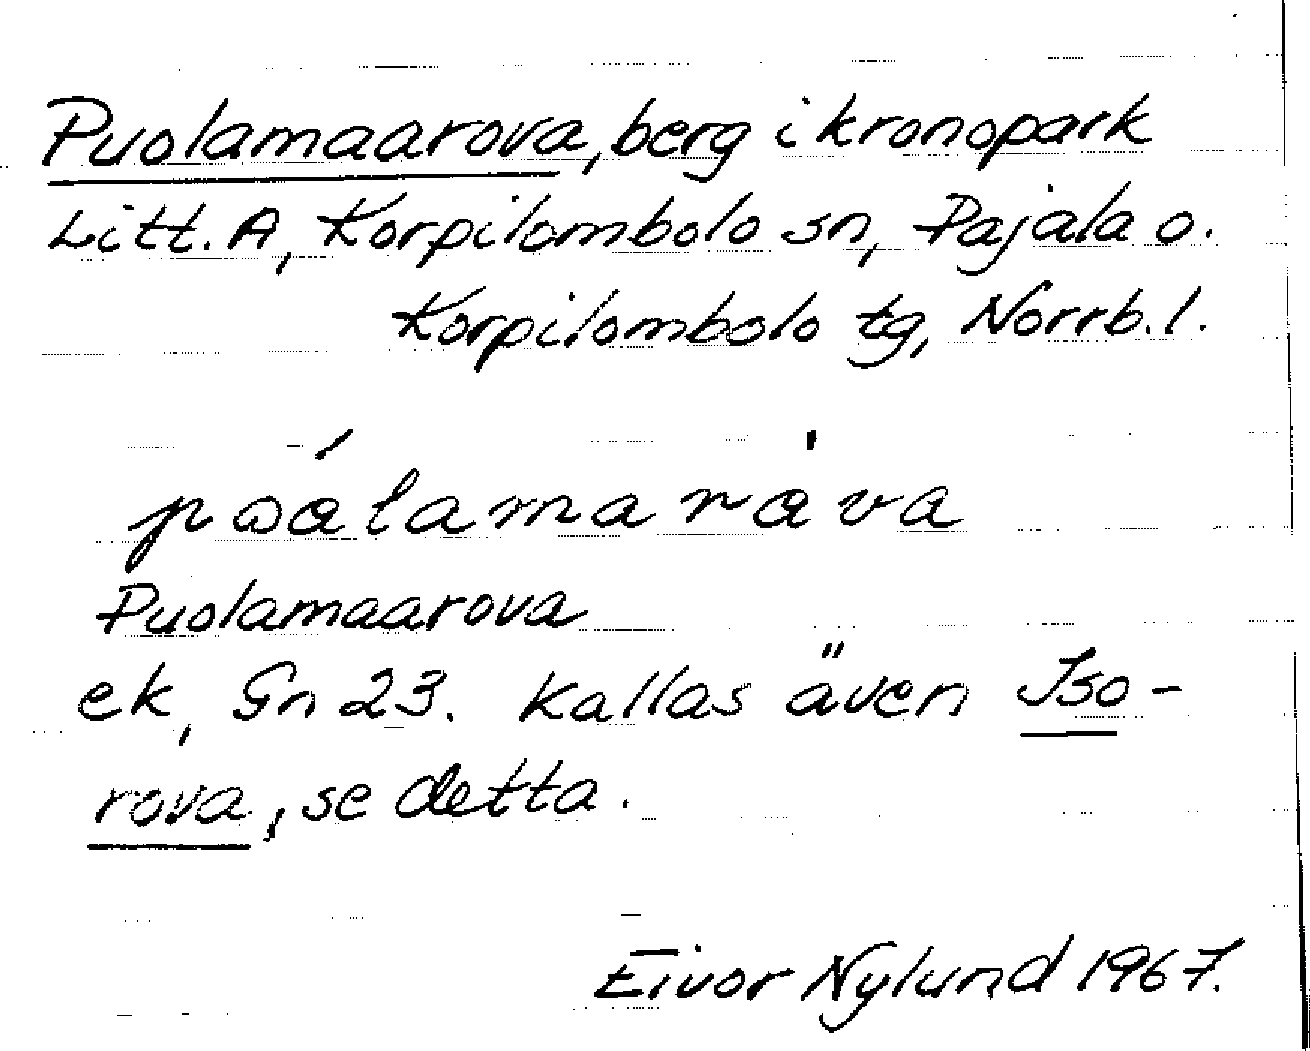 Puolamaarova, berg i kronopark
Litt. A, Korpilombolo sn, Pajala o.
Korpilombolo tg, Norrb. l.
Puolamaarova
ek, Gn 23. Kallas även Iso-
rova, se detta.
Eivor Nylund 1967.